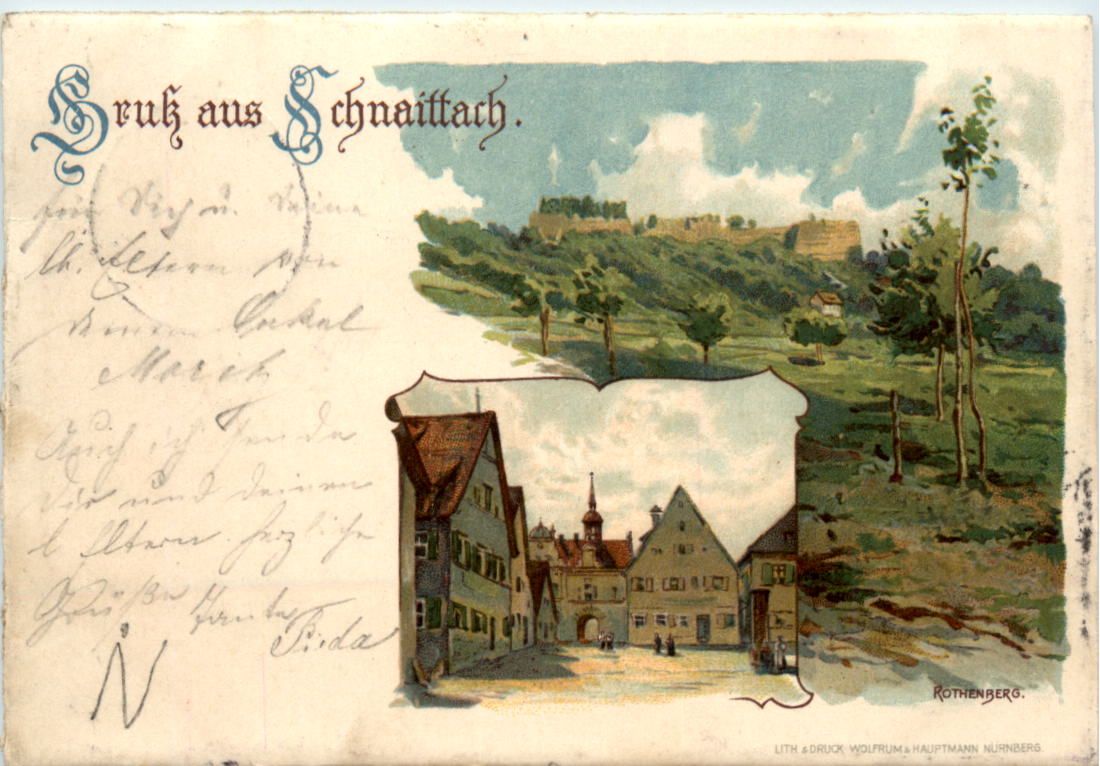 Gruß aus Schnaittach.
für Dich u. Deine
lb. Eltern von
Deinem Onkel
Moritz
Auch ich sende
Dir und Deinen
l Eltern herzliche
Grüße Tante
Frida
N
ROTHENBERG.
LITH. & DRUCK WOLFRUM & HAUPTMANN NÜRNBERG.